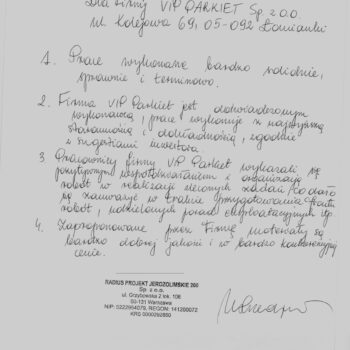 Dla firmy VIP PARKIET Sp. z o.o.
ul. Kolejowa 69, 05-092 Łomianki
1. Prace wykonane bardzo solidnie,
sprawnie i terminowo.
2. Firma VIP Parkiet jest doświadczonym
wykonawcą, prace wykonuje z najwyższą
starannością, dokładnością, zgodnie
z sugestiami inwestora.
3. Pracownicy firmy VIP Parkiet wykazali się
pozytywnym współdziałaniem z organizacją
robót w realizacji zleconych zadań, co dało
się zauważyć w trakcie przygotowania frontu
robót, udzielonych porad eksploatacyjnych itp.
4. Zaproponowane przez Firmę materiały są
bardzo dobrej jakości i w bardzo konkurencyjnej
cenie.
RADIUS PROJEKT JEROZOLIMSKIE 200
Sp. z o.o.
ul. Grzybowska 2 lok. 106
00-131 Warszawa
NIP: 5222854079, REGON: 141280072
KRS 0000292880